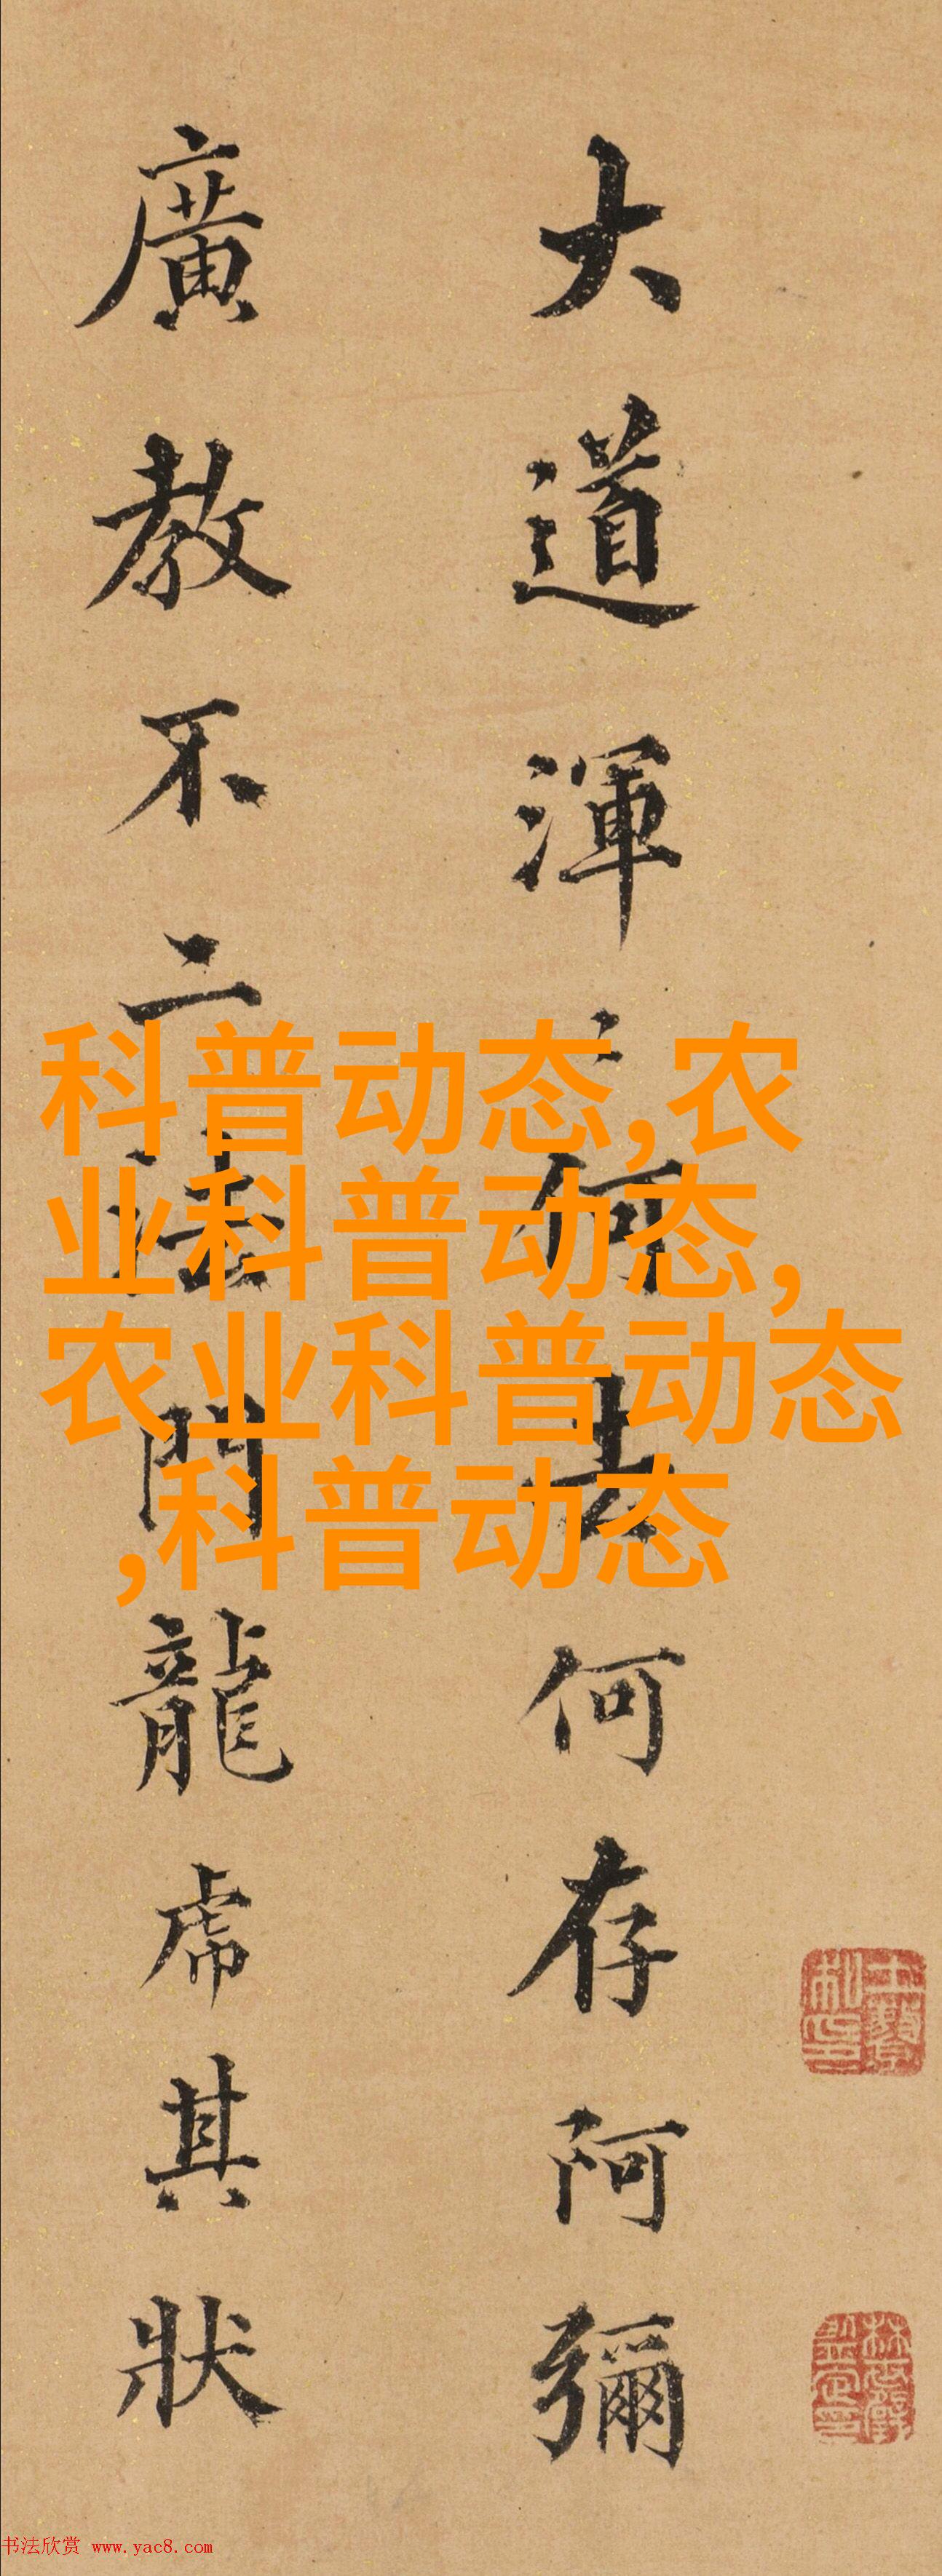 大道渾〻何去何存阿彌
廣教不二法門龍虎其狀
科普动态,农
业科普动态,
农业科普动态
,科普动态
书法欣赏 www.yac8.com